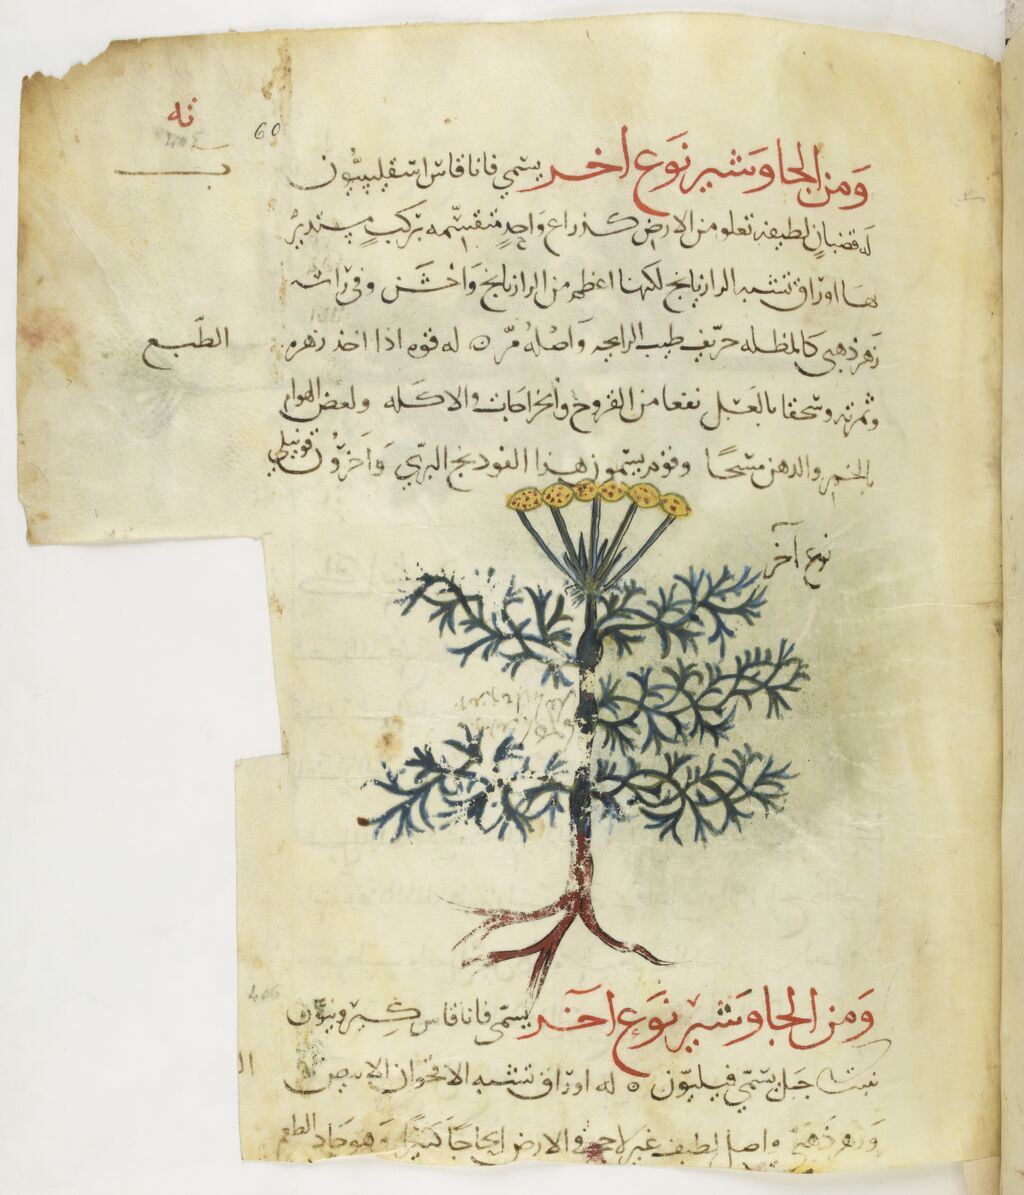 نه
60
ومن الجاوشير نوع اخر يسمى فاناقاس اسقليبيون
له قضبان لطيفة تعلو من الارض كذراع واحد منقسمه بتركيب مستدير
ها اوراق تشبه الرازيانج لكنها اعظم من الرازيانج واخشن وفي راسه
زهر ذهبي كالمظله حريف طيب الرايحه واصله مر ٥ له قوه اذا اخذ زهره
الطبع
وثمرته وسحقا بالعسل نفعا من القروح والخراجات والاكله ولعض الهوام
بالخمر والدهن مسحا وقوم يسمون هذا الفودنج البري واخرون قونيلي
نوع آخر
406
ومن الجاوشير نوع آخر يسمى فاناقاس خيرونيون
نبت جبل يسمى فيليون ٥ له اوراق تشبه الاقحوان الابيض
وزهر ذهبي واصل لطيف غير لاحج في الارض لجاجا كثيرا وهو حاد الطعم
ال